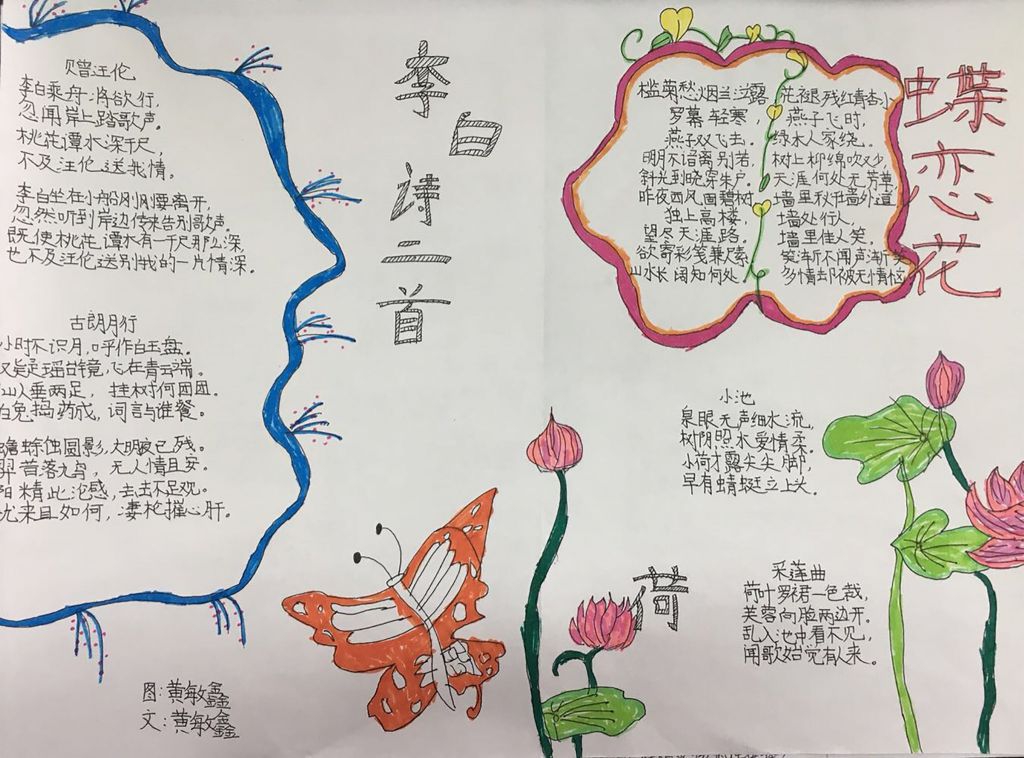 赠汪伦
李白乘舟将欲行,
忽闻岸上踏歌声。
桃花谭水深千尺,
不及汪伦送我情。
李白坐在小船刚刚要离开,
忽然听到岸边传来告别歌声。
既使桃花谭水有一千尺那么深,
也不及汪伦送别我的一片情深。
古朗月行
小时不识月,呼作白玉盘。
又疑是瑶台镜,飞在青云端。
仙人垂两足,挂树何团团。
白兔捣药成,词言与谁餐。
蟾蜍蚀圆影,大明夜已残。
羿首落九乌,无人情且安。
阳精此沦感,去去不足观。
尤来且如何,凄怆摧心肝。
图:黄敏鑫
文:黄敏鑫
李白诗二首
蝶恋花
槛菊愁烟兰泣露
罗幕轻寒,
燕子双飞去。
明月不谙离别苦,
斜光到晓穿朱户。
昨夜西风凋碧树,
独上高楼,
望尽天涯路。
欲寄彩笺兼尺素,
山水长阔知何处
花褪残红青杏小
燕子飞时,
绿水人家绕。
树上柳绵吹又少,
天涯何处无芳草
墙里秋千墙外道
墙处行人,
墙里佳人笑,
笑渐不闻声渐
多情却被无情恼
小池
泉眼无声细水流,
树阴照水爱情柔。
小荷才露尖尖脚,
早有蜻蜓立上火。
荷
采莲曲
荷叶罗裙一色裁,
芙蓉向脸两边开。
乱入池中看不见,
闻歌始觉有人来。